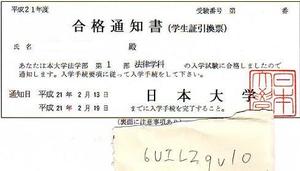 平成21年度
受験番号 第 番
合格通知書(学生証引換票)
氏名 殿
あなたは本大学法学部 第1部 法律学科 の入学試験に合格しましたので
通知します。入学手続要項に従って入学手続をして下さい。
通知日 平成21年2月13日
日本大学
平成21年2月19日 までに入学手続を完了すること。
(裏面に注意事項あり
6UILZqvl0